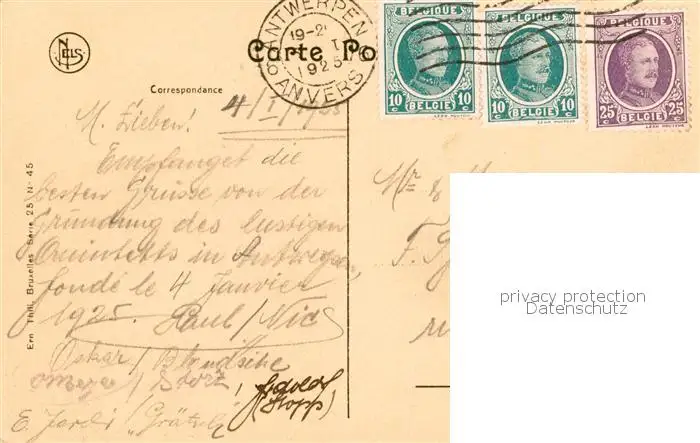 NELS
ANTWERPEN
19-2
1925
ANVERS
Carte Po
BELGIQUE
10 10
BELGIE
BELGIQUE
10 10
BELGIE
BELGIQUE
25 25
BELGIE
Correspondance
4/I/1925
M. Lieben!
Empfanget die
besten Grüsse von der
Gründung des lustigen
Quintetts in Antwerpen,
fondé le 4 Janvier
1925. Paul/
Oskar/
Mr &
F.
privacy protection
Datenschutz
Ern. Thill, Bruxelles Série 25 No 45